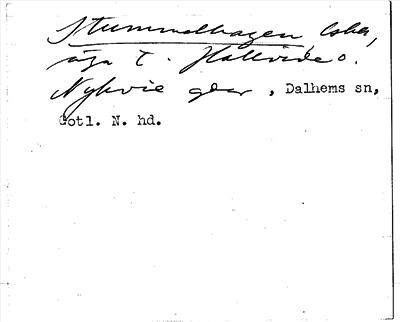 Stummelhagen, åker,
äga t. Hallvide o.
Nykvie gdar, Dalhems sn,
Gotl. N. hd.